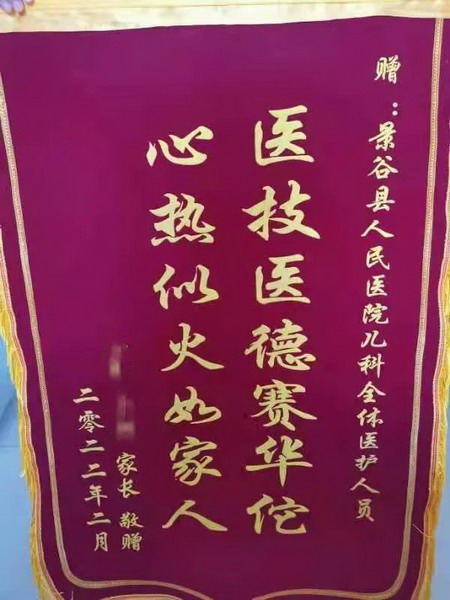 赠：景谷县人民医院儿科全体医护人员
医技医德赛华佗
心热似火如家人
家长 敬赠
二零二二年二月